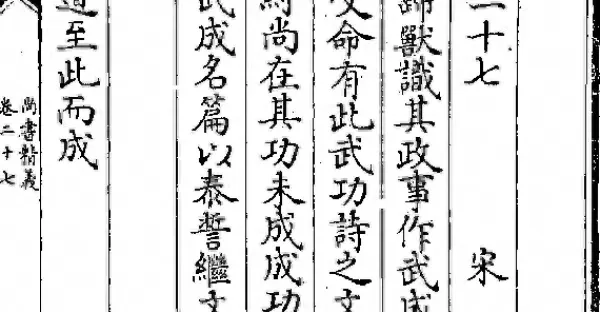 二十七 宋
歸獸識其政事作武成
受命有此武功詩之文
紂尚在其功未成成功
武成名篇以泰誓繼文
道至此而成
尚書精義
卷二十七